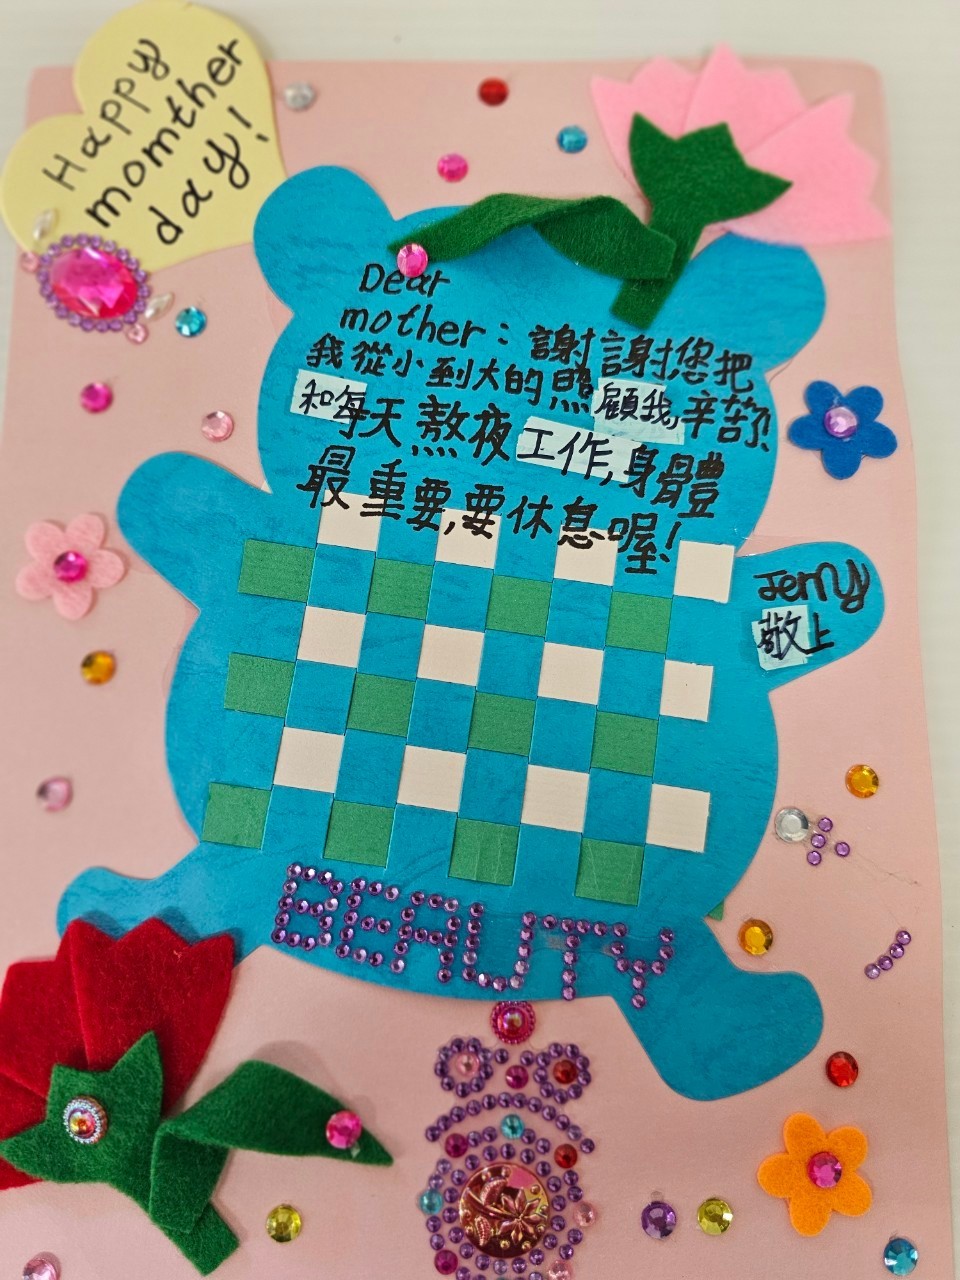 Happy
momther
day!
Dear
mother：謝謝您把
我從小到大的照顧我,辛苦,
和每天熬夜工作,身體
最重要,要休息喔!
Jerry
敬上
BEAUTY